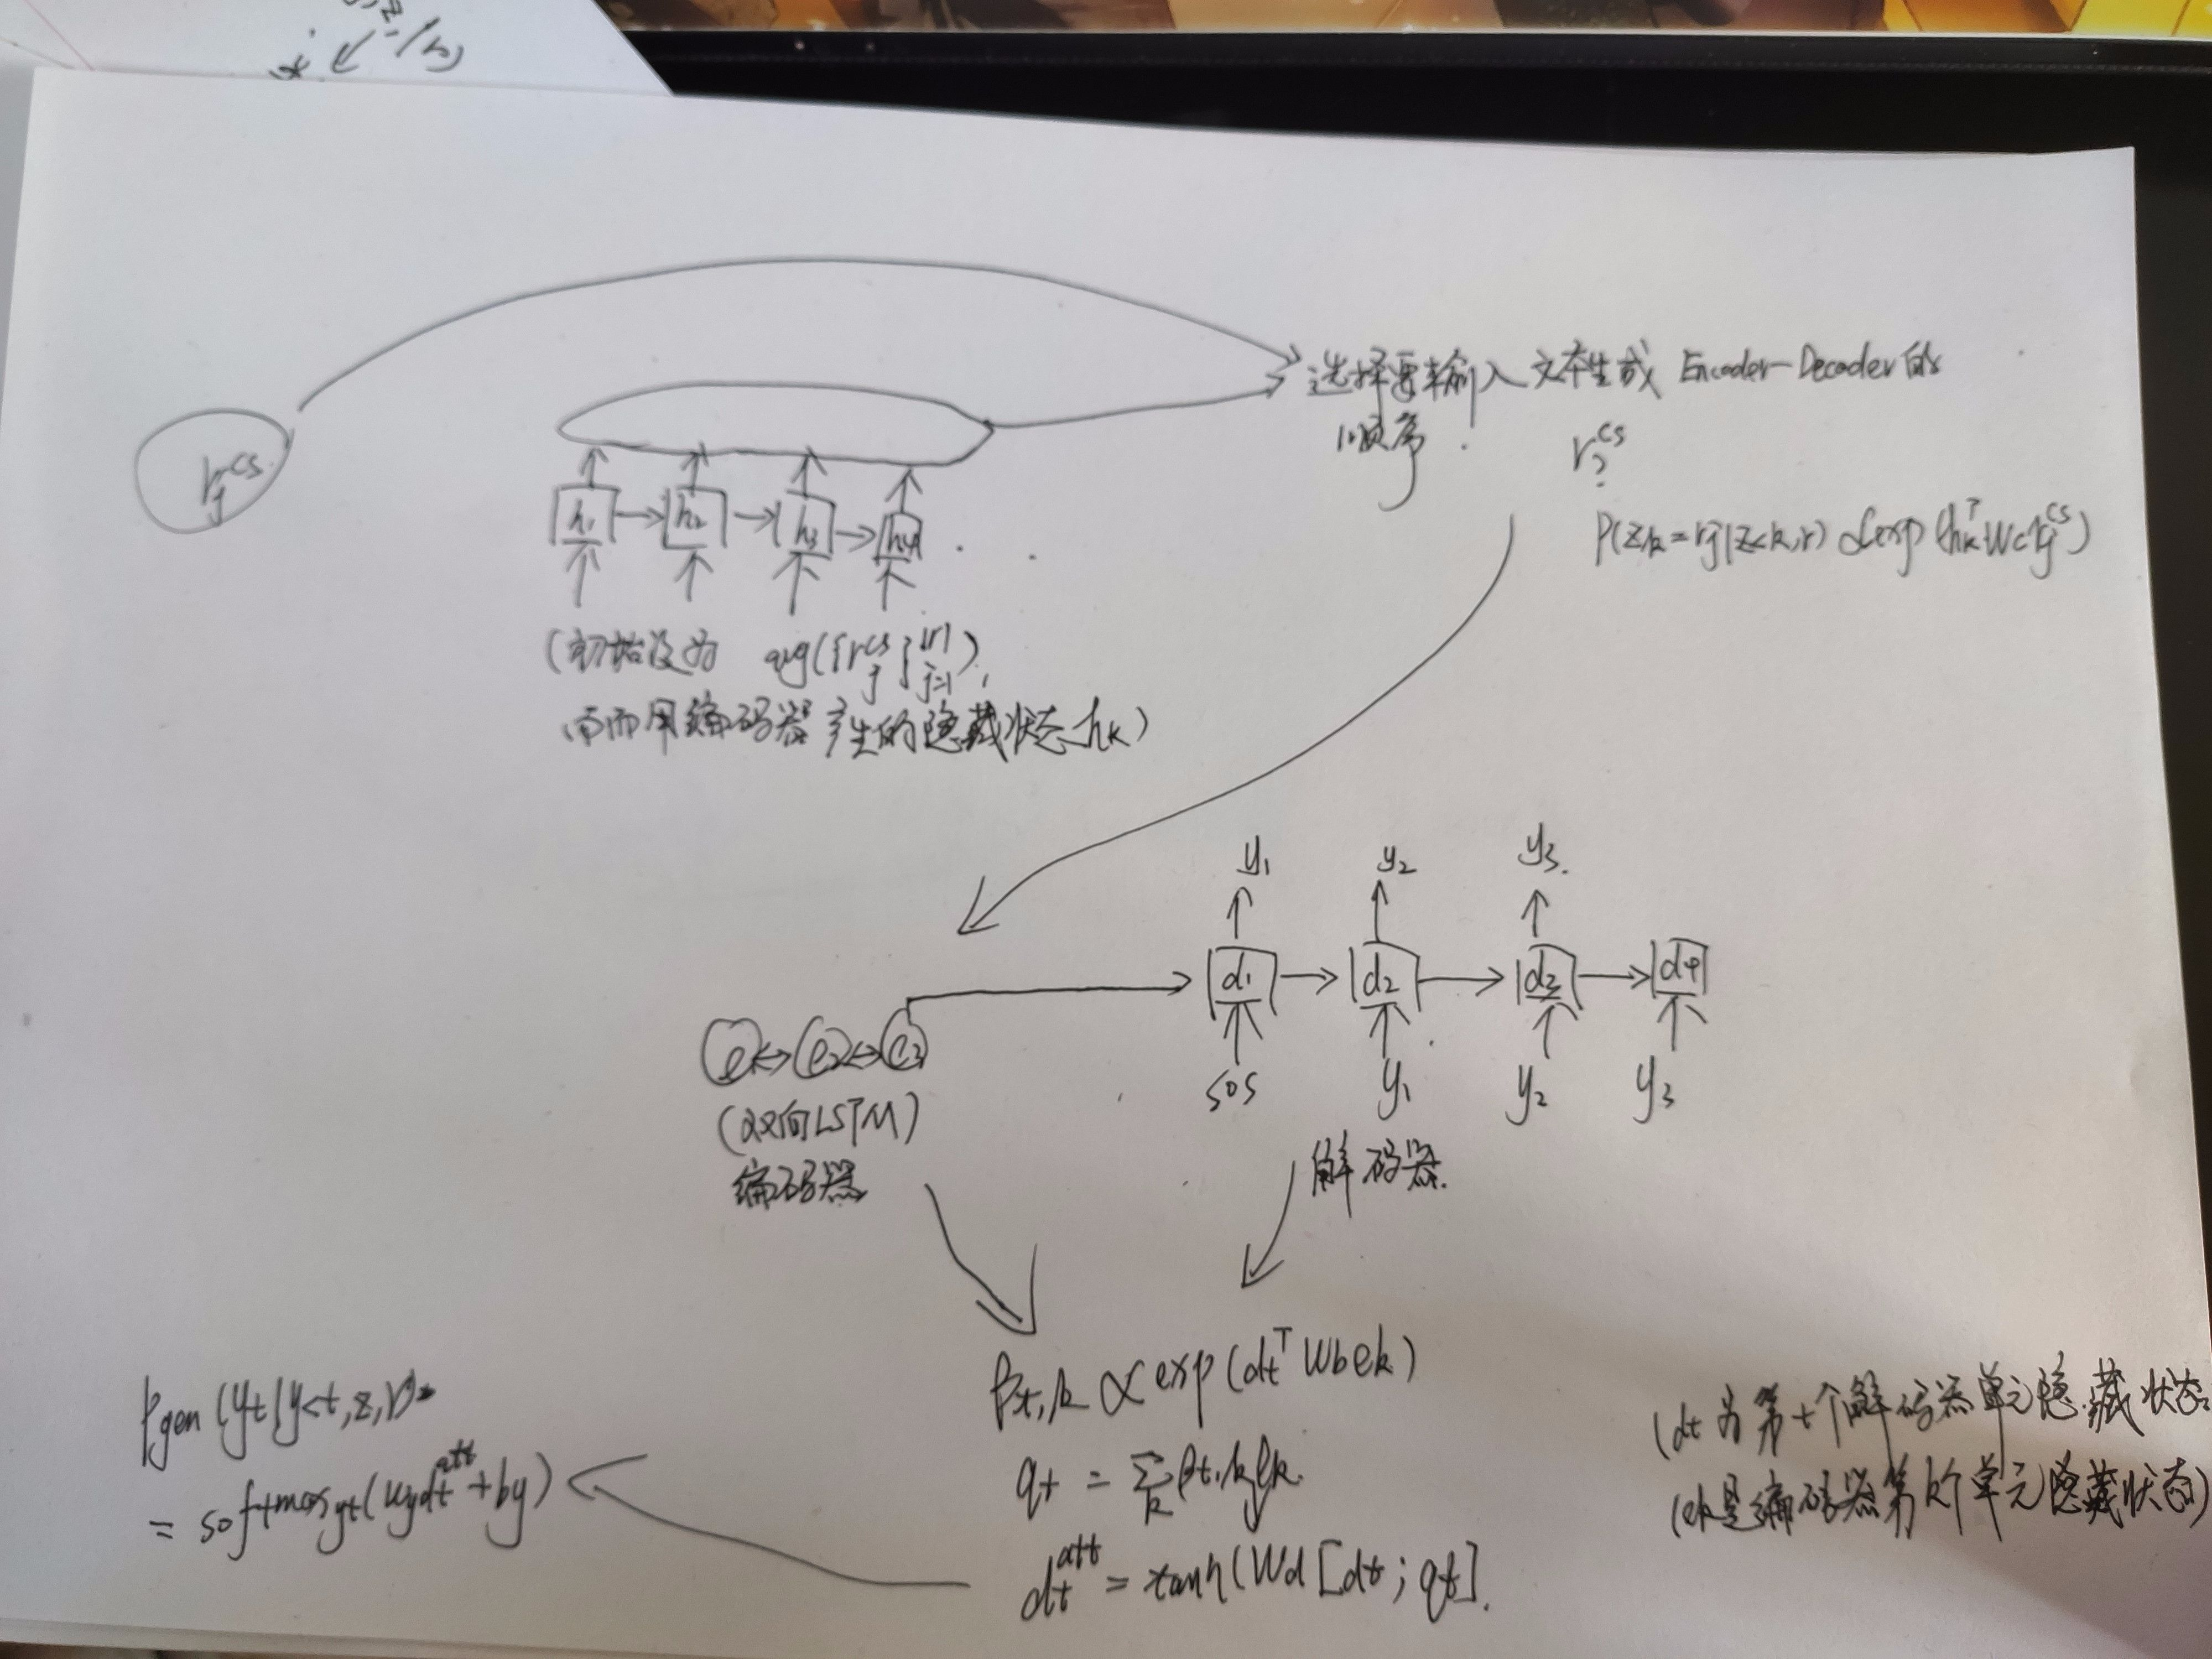 r_j^{cs}
选择要输入文本生成 Encoder-Decoder的
顺序.
r_?^{cs}
P(z_k = r_j | z<k, r) ∝ exp(h_k^T W_c r_j^{cs})
h_1 h_2 h_3 h_4
(初始设为 avg({r_j^{cs}}_{j=1}^{|r|}),
用编码器产生的隐藏状态 h_k)
y_1 y_2 y_3.
d_1 d_2 d_3 d_4
SOS y_1 y_2 y_3
e_1 e_2 e_3
(双向LSTM)
编码器
解码器.
β_{t,k} ∝ exp(d_t^T W_b e_k)
q_t = Σ_k β_{t,k} e_k.
d_t^{att} = tanh(W_d [d_t ; q_t].
P_{gen}(y_t | y<t, z, r) =
= softmax_{yt}(W_y d_t^{att} + b_y)
(d_t为第t个解码器单元隐藏状态
(e_k是编码器第k个单元隐藏状态)